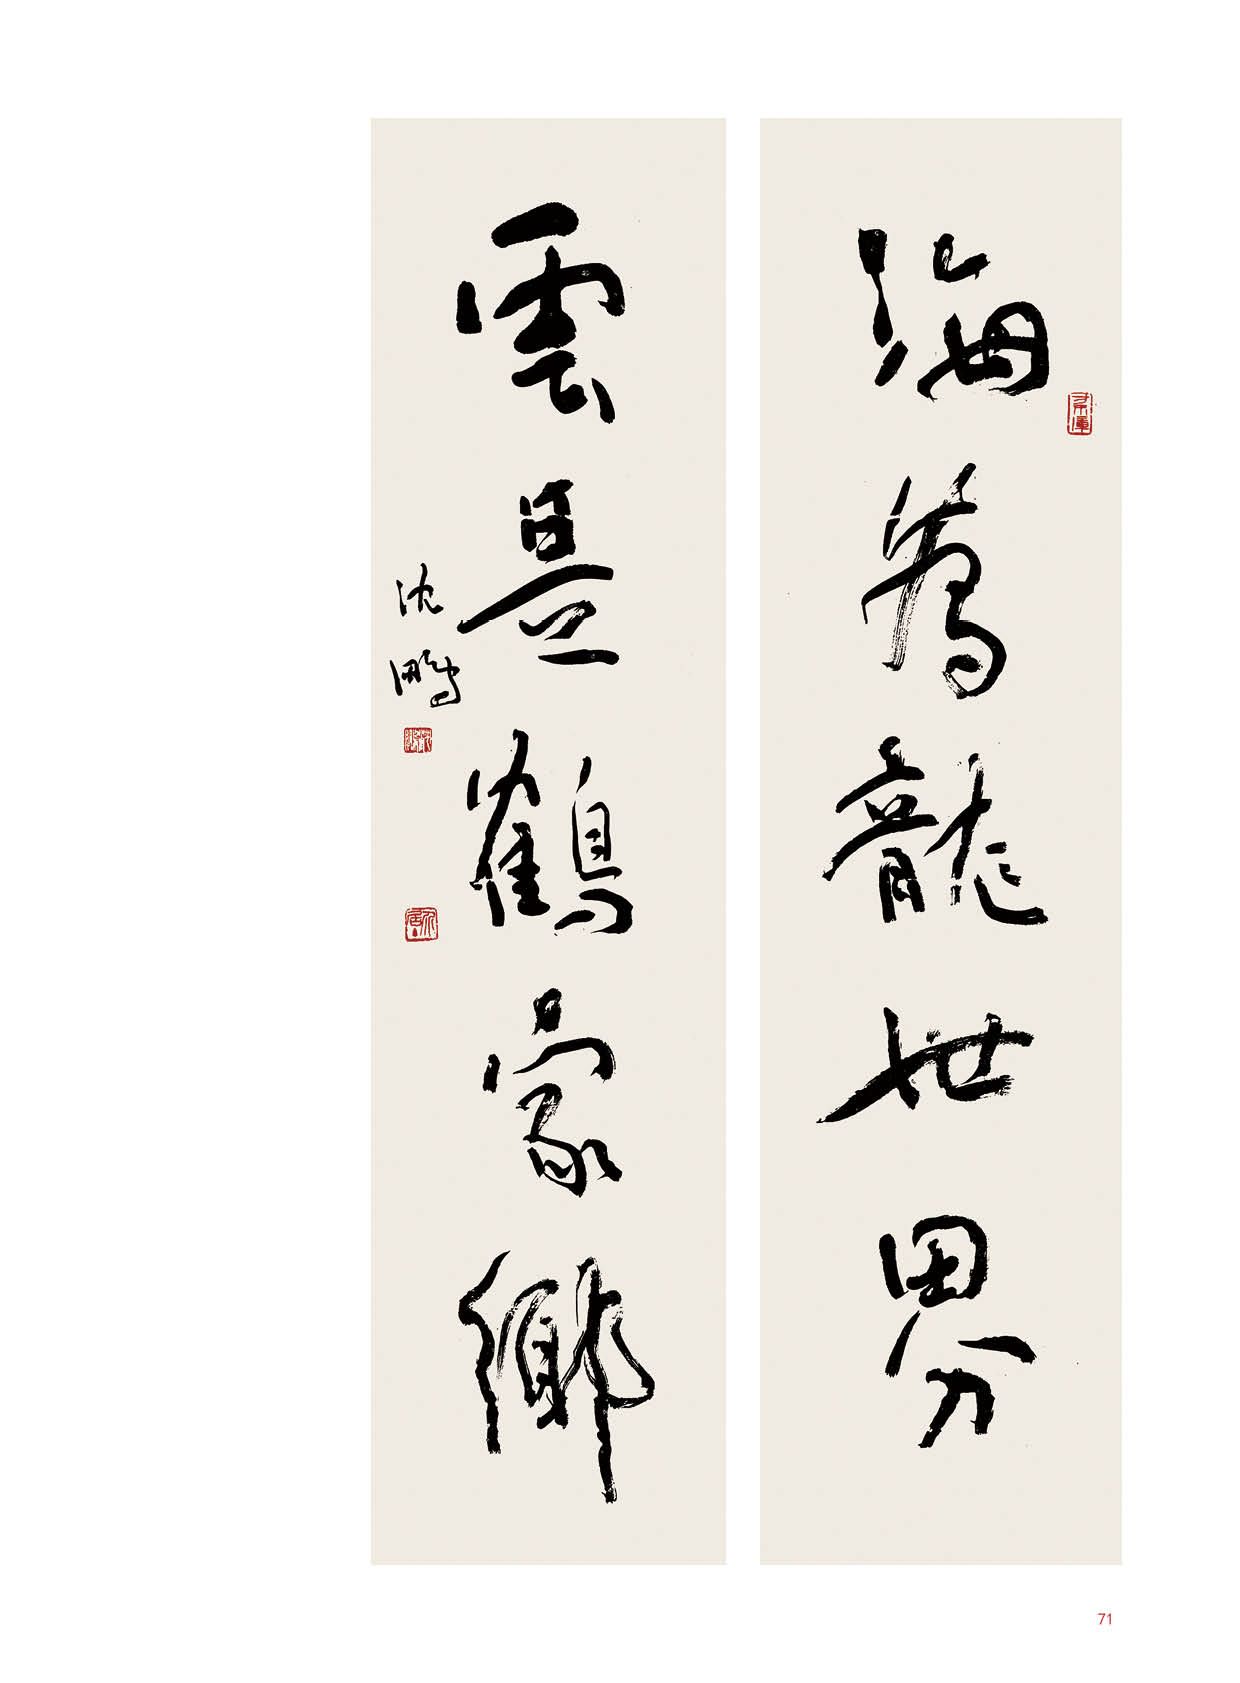 海為龍世界
雲是鶴家鄉
沈鵬
71